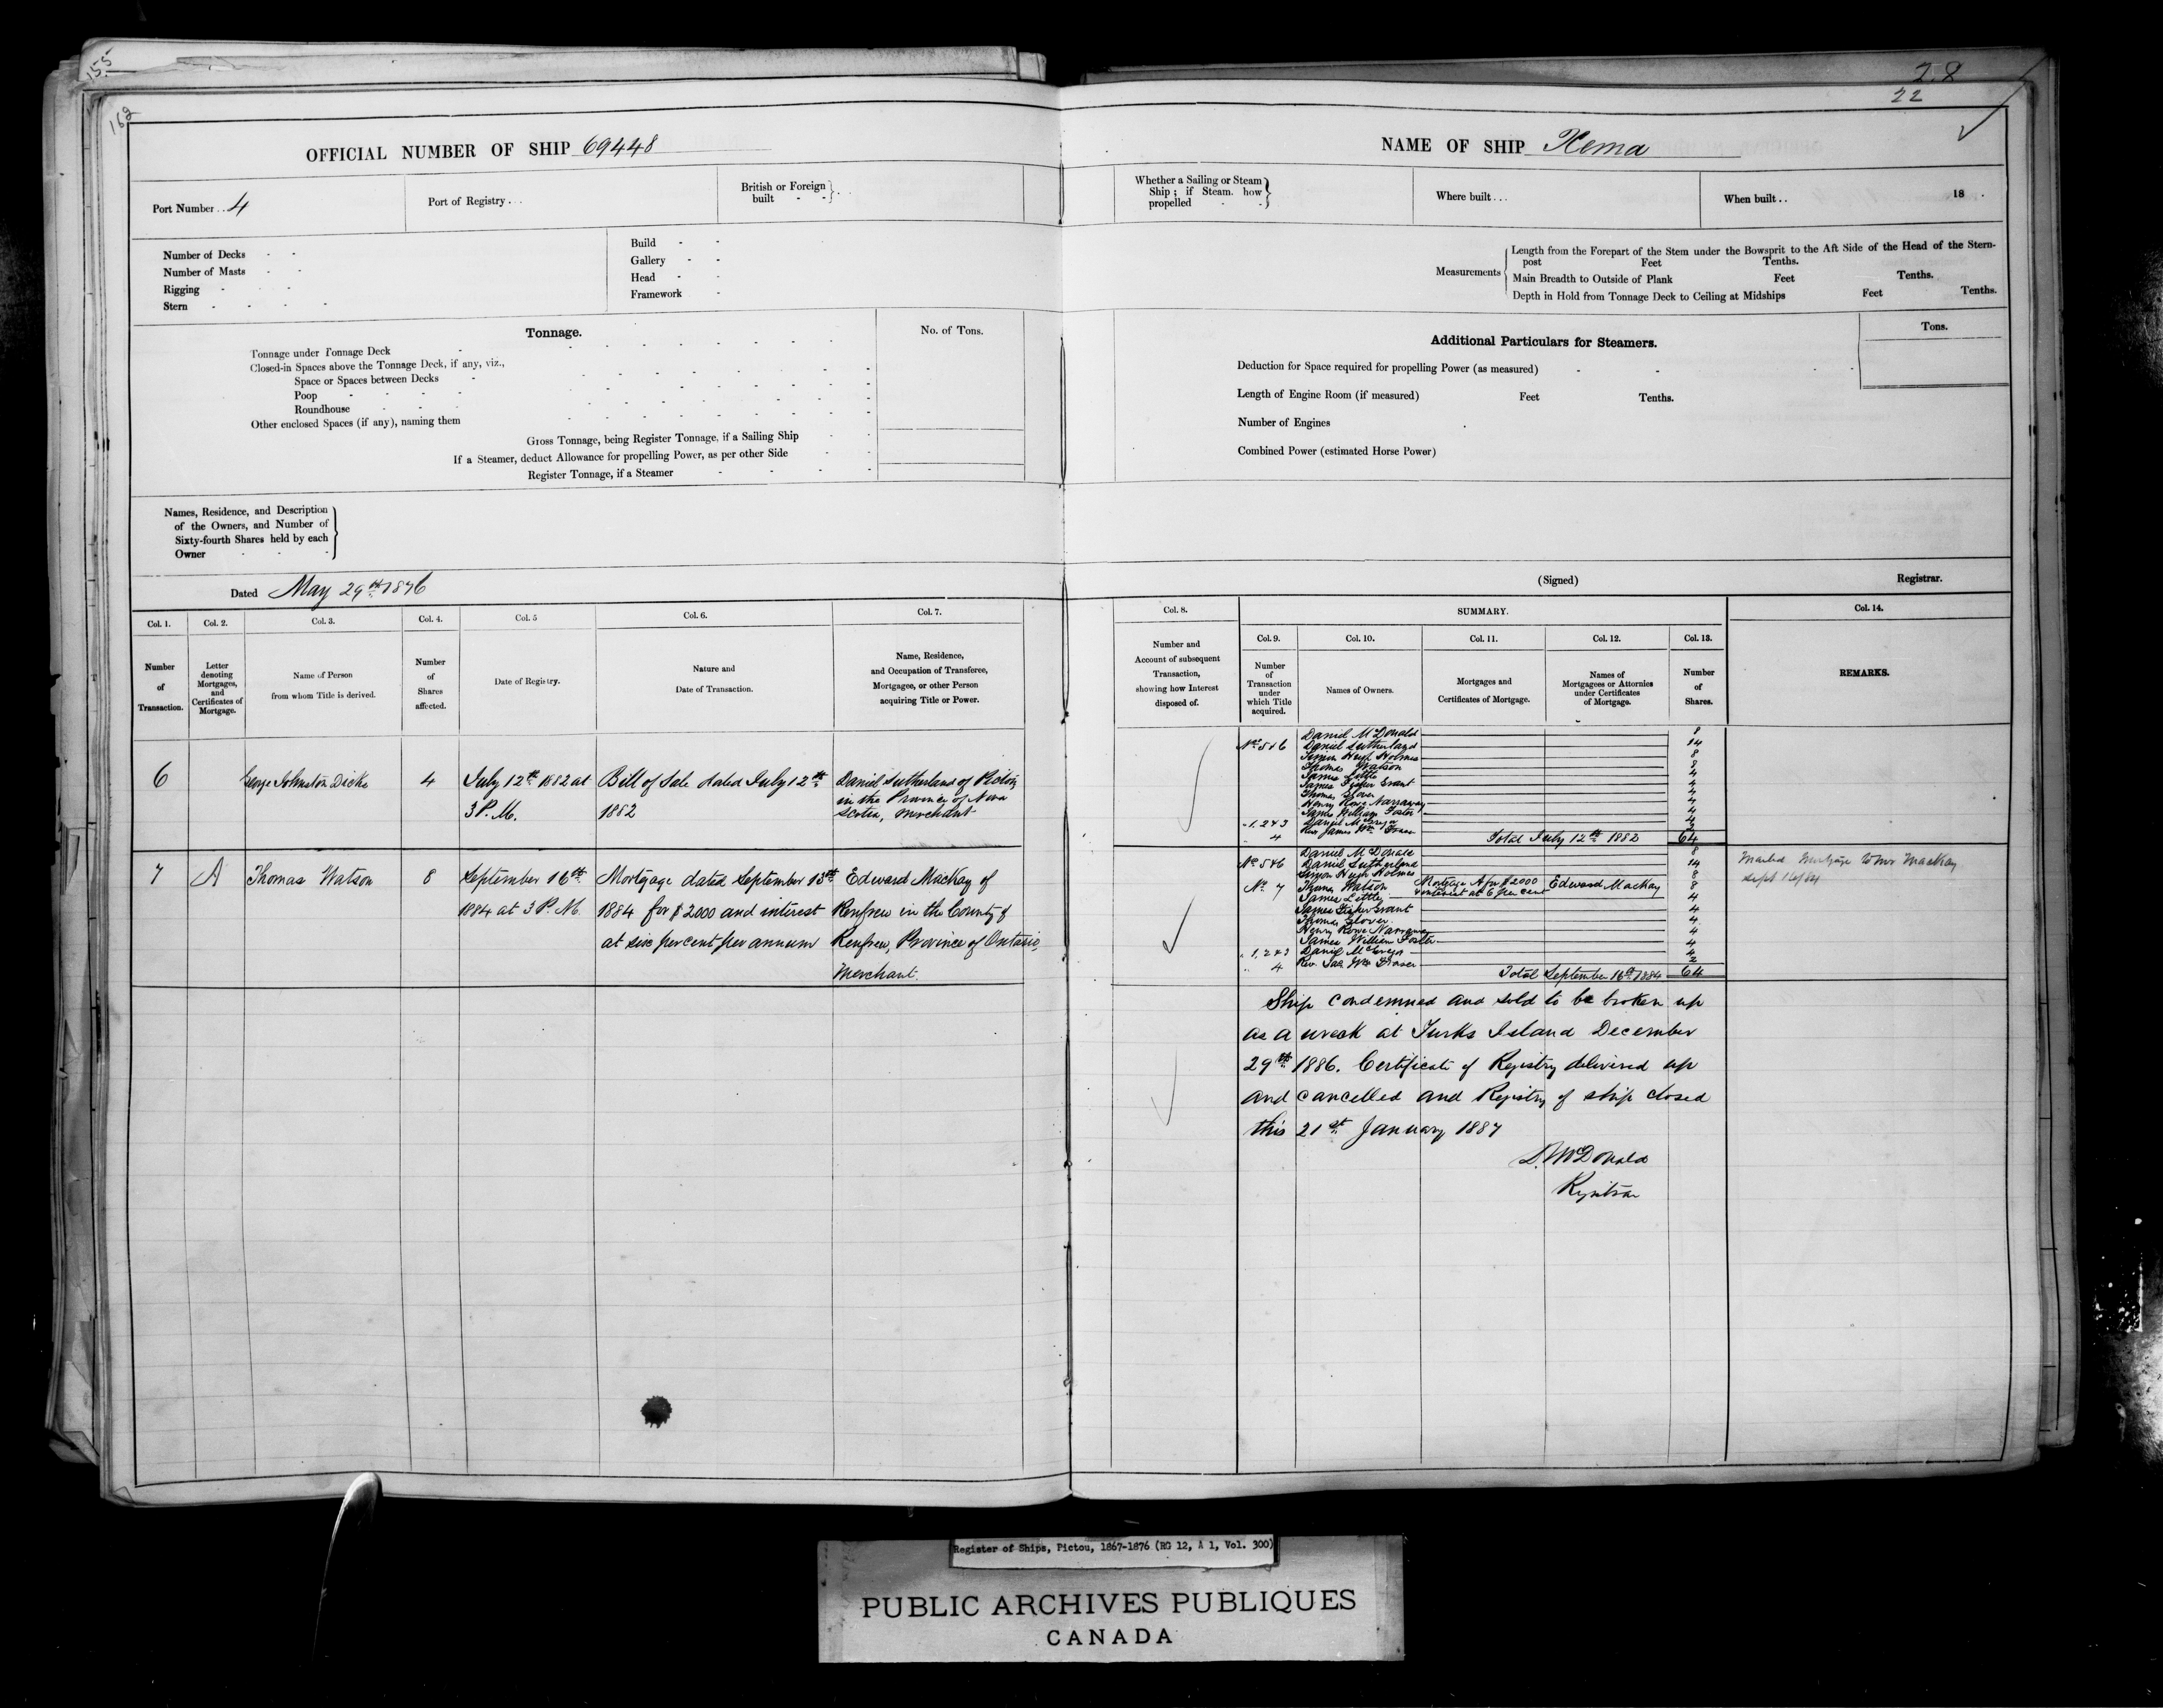 155
162
28
22
OFFICIAL NUMBER OF SHIP 69448
NAME OF SHIP Kema
Port Number . . 4
Port of Registry . . .
British or Foreign
built - -
Whether a Sailing or Steam
Ship; if Steam. how
propelled - -
Where built . . .
When built . . 18 .
Number of Decks - -
Number of Masts - -
Rigging - - -
Stern - - - -
Build - -
Gallery - -
Head - -
Framework -
Measurements
Length from the Forepart of the Stem under the Bowsprit to the Aft Side of the Head of the Stern-
post Feet Tenths.
Main Breadth to Outside of Plank Feet Tenths.
Depth in Hold from Tonnage Deck to Ceiling at Midships Feet Tenths.
Tonnage.
No. of Tons.
Tonnage under Tonnage Deck
Closed-in Spaces above the Tonnage Deck, if any, viz.,
Space or Spaces between Decks
Poop
Roundhouse
Other enclosed Spaces (if any), naming them
Gross Tonnage, being Register Tonnage, if a Sailing Ship
If a Steamer, deduct Allowance for propelling Power, as per other Side
Register Tonnage, if a Steamer
Additional Particulars for Steamers.
Tons.
Deduction for Space required for propelling Power (as measured)
Length of Engine Room (if measured) Feet Tenths.
Number of Engines
Combined Power (estimated Horse Power)
Names, Residence, and Description
of the Owners, and Number of
Sixty-fourth Shares held by each
Owner
Dated May 29th 1876
(Signed) Registrar.
Col. 1.
Number
of
Transaction.
Col. 2.
Letter
denoting
Mortgages,
and
Certificates of
Mortgage.
Col. 3.
Name of Person
from whom Title is derived.
Col. 4.
Number
of
Shares
affected.
Col. 5
Date of Registry.
Col. 6.
Nature and
Date of Transaction.
Col. 7.
Name, Residence,
and Occupation of Transferee,
Mortgagee, or other Person
acquiring Title or Power.
Col. 8.
Number and
Account of subsequent
Transaction,
showing how Interest
disposed of.
SUMMARY.
Col. 9.
Number
of
Transaction
under
which Title
acquired.
Col. 10.
Names of Owners.
Col. 11.
Mortgages and
Certificates of Mortgage.
Col. 12.
Names of
Mortgagees or Attornies
under Certificates
of Mortgage.
Col. 13.
Number
of
Shares.
Col. 14.
REMARKS.
6
George Johnston Dicke
4
July 12th 1882 at
3 P. M.
Bill of Sale dated July 12th
1882
Daniel Sutherland of Pictou
in the Province of Nova
Scotia, Merchant
Daniel McDonald 8
No 5&6 Daniel Sutherland 14
Simon Hugh Holmes 8
Thomas Watson 8
James Little 4
James Fisher Grant 4
Thomas Glover 4
Henry Rowe Narraway 4
James William Foster 4
" 1, 2 & 3 Daniel McGregor 4
4 Rev James Wm Fraser 2
Total July 12th 1882 64
7
A
Thomas Watson
8
September 16th
1884 at 3 P. M.
Mortgage dated September 13th
1884 for $2000 and interest
at six per cent per annum
Edward MacKay of
Renfrew in the County of
Renfrew, Province of Ontario,
Merchant.
Daniel McDonald 8
No 5&6 Daniel Sutherland 14
Simon Hugh Holmes 8
No 7 Thomas Watson Mortgage A for $2000 Edward MacKay 8
& interest at 6 per cent
James Little 4
James Fisher Grant 4
Thomas Glover 4
Henry Rowe Narraway 4
James William Foster 4
" 1, 2 & 3 Daniel McGregor 4
" 4 Rev. Jas Wm Fraser 2
Total September 16th 1884 64
Mortgage MacKay
Sept 16/84
Ship condemned and sold to be broken up
as a wreck at Turks Island December
29th 1886. Certificate of Registry delivered up
and cancelled and Registry of ship closed
this 21st January 1887
D. McDonald
Registrar
Register of Ships, Pictou, 1867-1876 (RG 12, A 1, Vol. 300)
PUBLIC ARCHIVES PUBLIQUES
CANADA